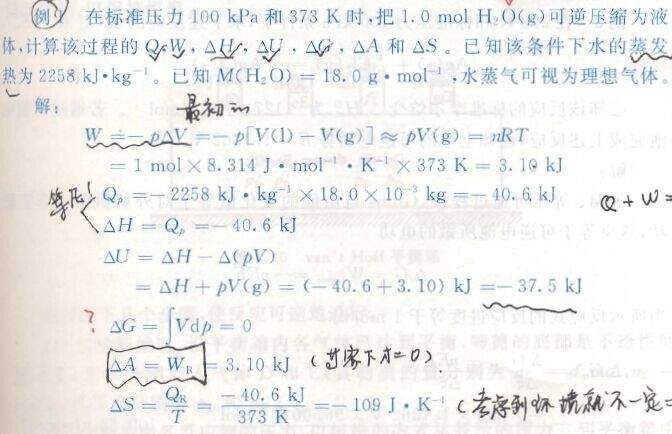 例1 在标准压力 100 kPa 和 373 K 时,把 1.0 mol H₂O(g)可逆压缩为液
体,计算该过程的 Q,W, ΔH, ΔU, ΔG, ΔA 和 ΔS。已知该条件下水的蒸发
热为 2258 kJ·kg⁻¹。已知 M(H₂O) = 18.0 g·mol⁻¹,水蒸气可视为理想气体。
解:
W = −pΔV = −p[V(l) − V(g)] ≈ pV(g) = nRT
= 1 mol×8.314 J·mol⁻¹·K⁻¹×373 K = 3.10 kJ
等压! Qₚ = −2258 kJ·kg⁻¹×18.0×10⁻³ kg = −40.6 kJ
Q + W =
ΔH = Qₚ = −40.6 kJ
ΔU = ΔH − Δ(pV)
= ΔH + pV(g) = (−40.6+3.10) kJ = −37.5 kJ
? ΔG = ∫Vdp = 0
ΔA = W_R = 3.10 kJ
ΔS = Q_R/T = −40.6 kJ/373 K = −109 J·K⁻¹ (考虑到环境就不一定=